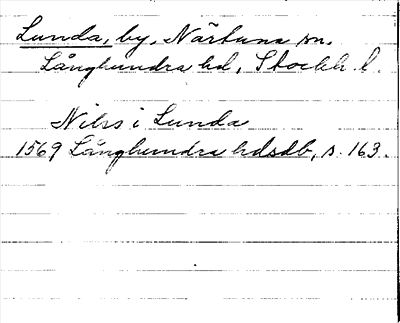 Lunda, by, Närtuna sn,
Långhundra hd, Stockh. l.
Nils i Lunda
1569 Långhundra hdsdb, s. 163.